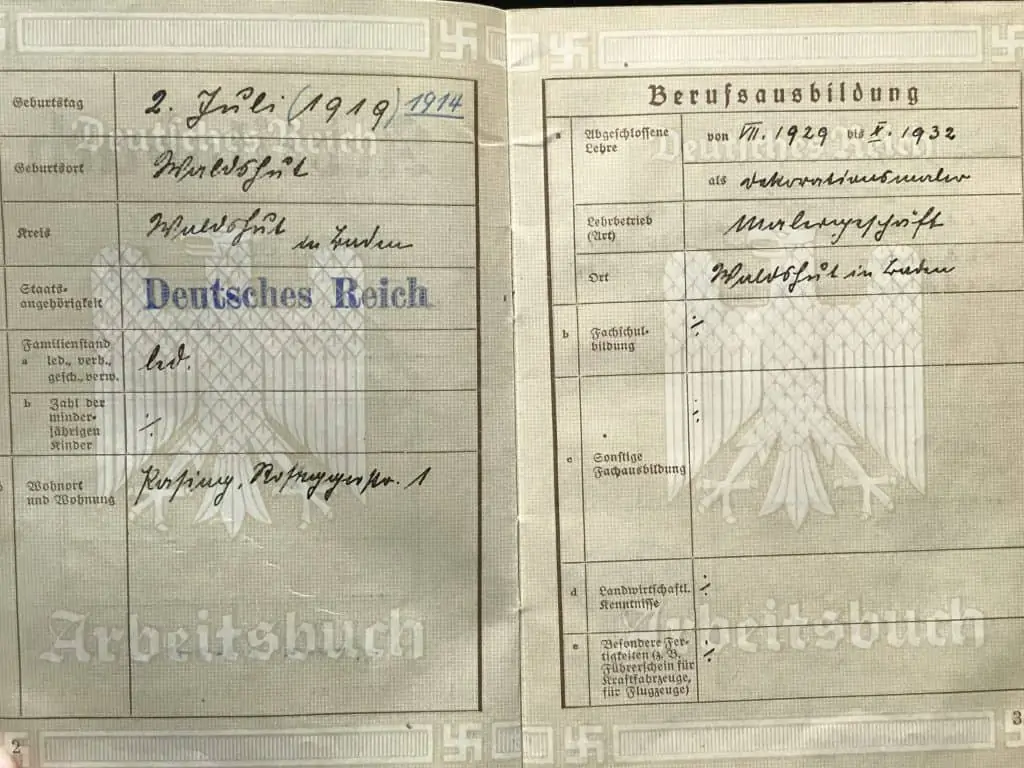 Geburtstag
2. Juli (1919) 1914
Geburtsort
Waldshut
Kreis
Waldshut in Baden
Staats-
angehörigkeit
Deutsches Reich
Familienstand
a led., verh.,
gesch., verw.
led.
b Zahl der
minder-
jährigen
Kinder
÷
Wohnort
und Wohnung
Pasing, Roseggerstr. 1
Deutsches Reich
Arbeitsbuch
2
Berufsausbildung
a Abgeschlossene
Lehre
von VII. 1929 bis X. 1932
als Dekorationsmaler
Lehrbetrieb
(Art)
Malergeschäft
Ort
Waldshut in Baden
b Fachschul-
bildung
÷
c Sonstige
Fachausbildung
÷
d Landwirtschaftl.
Kenntnisse
÷
e Besondere Fer-
tigkeiten (z. B.
Führerschein für
Kraftfahrzeuge,
für Flugzeuge)
÷
Deutsches Reich
Arbeitsbuch
3